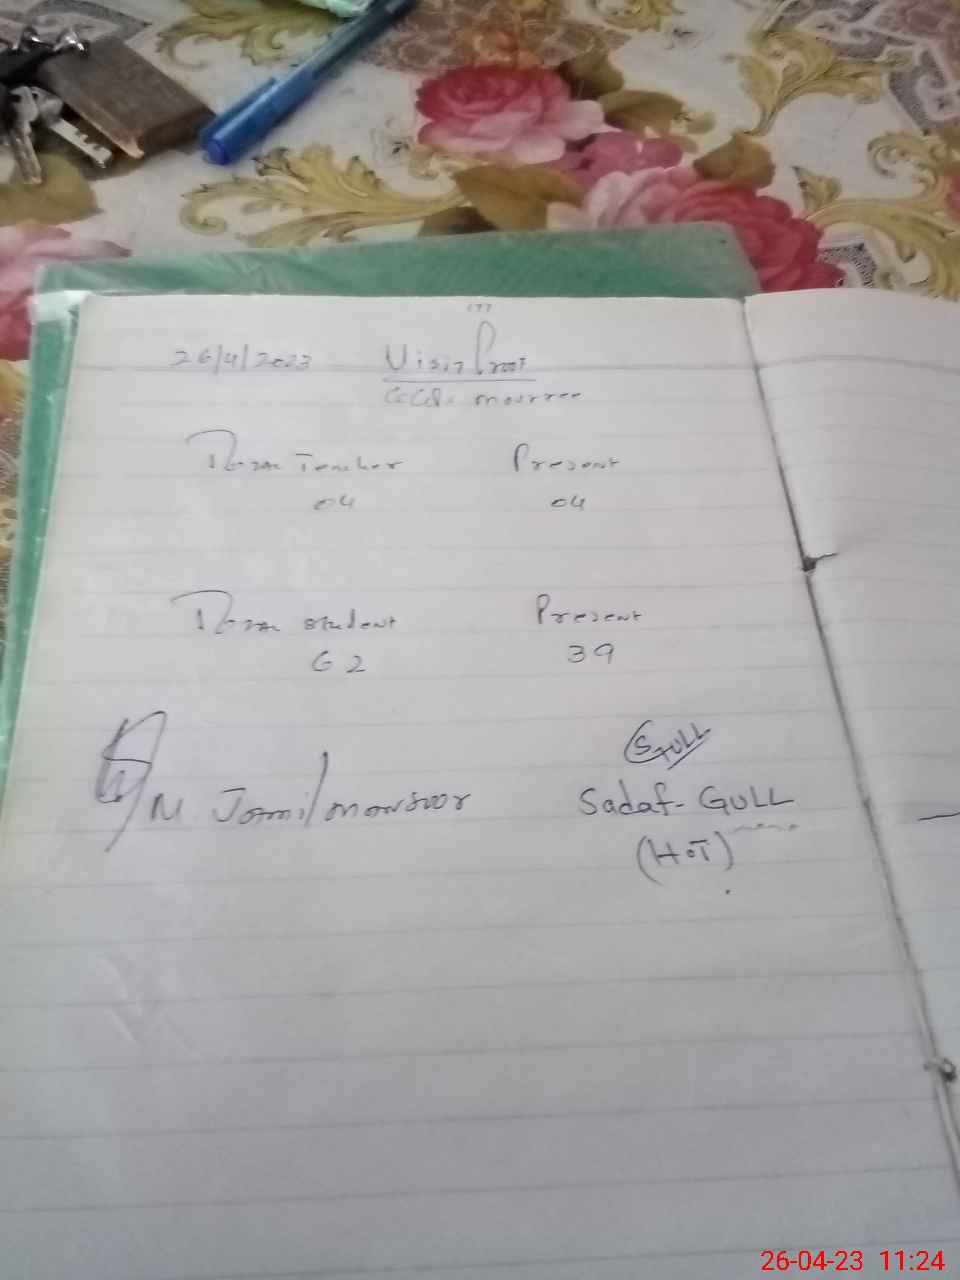 177
26/4/2023 Visit Proof
Total Teacher Present
04 04
Total Student Present
62 39
SGULL
M. Jamil mansoor Sadaf-GULL
(HOT)
26-04-23 11:24